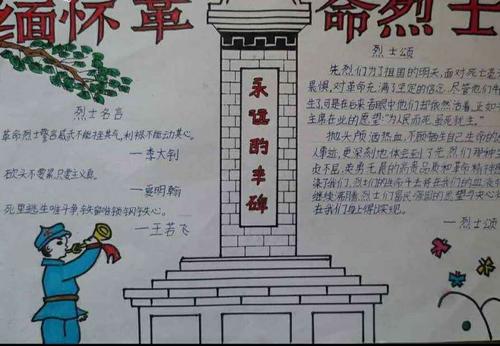 缅怀革命烈士
烈士名言
革命烈士警言威武不能挫其气,利禄不能动其心。
—李大钊
砍头不要紧,只要主义真。
—夏明翰
死里逃生唯斗争,铁窗难锁钢铁心。
—王若飞
永远的丰碑
烈士颂
先烈们为了祖国的明天,面对死亡
畏惧,对革命充满了坚定的信念.尽管他们
生了,可是在后来者眼中他们却依然活着.正如
主席在此的愿望:"为人民而死,虽死犹生."
抛头颅洒热血,不顾牺牲自己生命的
人事迹,更深刻地体会到了先烈们那种
贞不屈,英勇无畏的高贵品质和革命精神
染了我们,烈士们的生命才会在我们的血液
继续沸腾,烈士们富民强国的愿望与决心
在我们身上得以实现。
—烈士颂